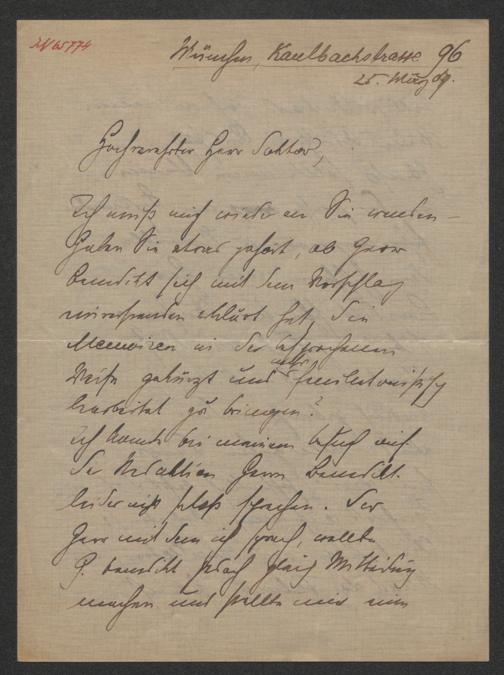 IN 65774
München, Kaulbachstrasse 96
25. März 09.
Hochverehrter Herr Doktor,
Ich muß mich wieder an Sie wenden –
Haben Sie etwas gehört, ob Herr
Benedikt sich mit dem Vorschlag
einverstanden erklärt hat, die
Memoiren in der besprochenen
Weise gekürzt und mehr feuilletonistisch
bearbeitet zu bringen?
Ich konnte bei meinem Besuch auf
der Redaktion Herrn Benedikt
leider nicht selbst sprechen. Der
Herr mit dem ich sprach, wollte
H. Benedikt jedoch gleich Mitteilung
machen und stellte mir eine